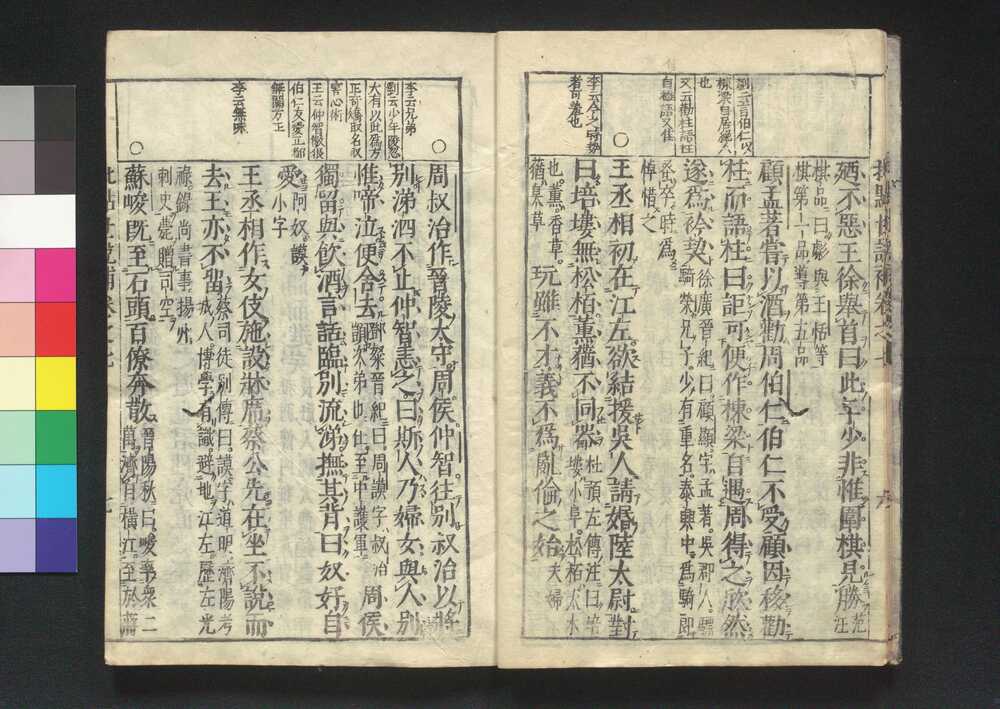 廼不惡王徐舉首曰此年少非惟圍棋見勝范汪
棋品曰彪與王恬等
棋第一品導第五品
顧孟著嘗以酒勸周伯仁伯仁不受顧因移勸
柱而語柱曰詎可便作棟梁自遇周得之欣然
遂爲衿契徐廣晉紀曰顧顯字孟著吳郡人驃
騎榮兄子少有重名泰興中爲騎郎
蚤卒時爲
悼惜之
王丞相初在江左欲結援吳人請婚陸太尉對
曰培塿無松栢薰蕕不同器杜預左傳注曰培
塿小阜松栢大木
也薰香草
蕕臭草
玩雖不才義不爲亂倫之始夫婦
劉云言伯仁以
棟梁自居
也
又云勸柱語佳
自遇語又佳
者可
周叔治作晉陵太守周侯仲智往別叔治以將
別涕泗不止仲智恚之曰斯人乃婦女與人別
惟啼泣便舍去鄧粲晉紀曰周謨字叔治
顗次弟也仕至中護軍
周侯
獨留與飲酒言話臨別流涕撫其背曰奴好自
愛阿奴謨
小字
王丞相作女伎施設牀席蔡公先在坐不說而
去王亦不留蔡司徒別傳曰謨字道明濟陽考
城人博學有識避地江左歷左光
祿錄尚書事揚州
刺史薨贈司空
蘇峻既至石頭百僚奔散晉陽秋曰峻率衆二
萬濟自橫江至於蔣
李云兄弟
劉云少年
大有以此爲方
正可矯取名
王云仲智傲狠
伯仁友愛正鄰
無關方正
李云無味